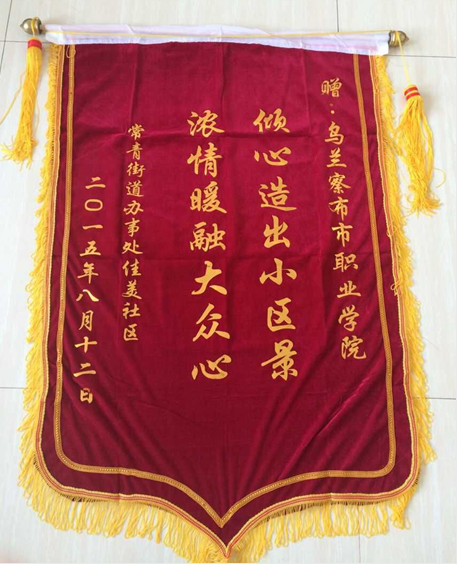 赠：乌兰察布市职业学院
倾心造出小区景
浓情暖融大众心
常青街道办事处佳美社区
二〇一五年八月十二日